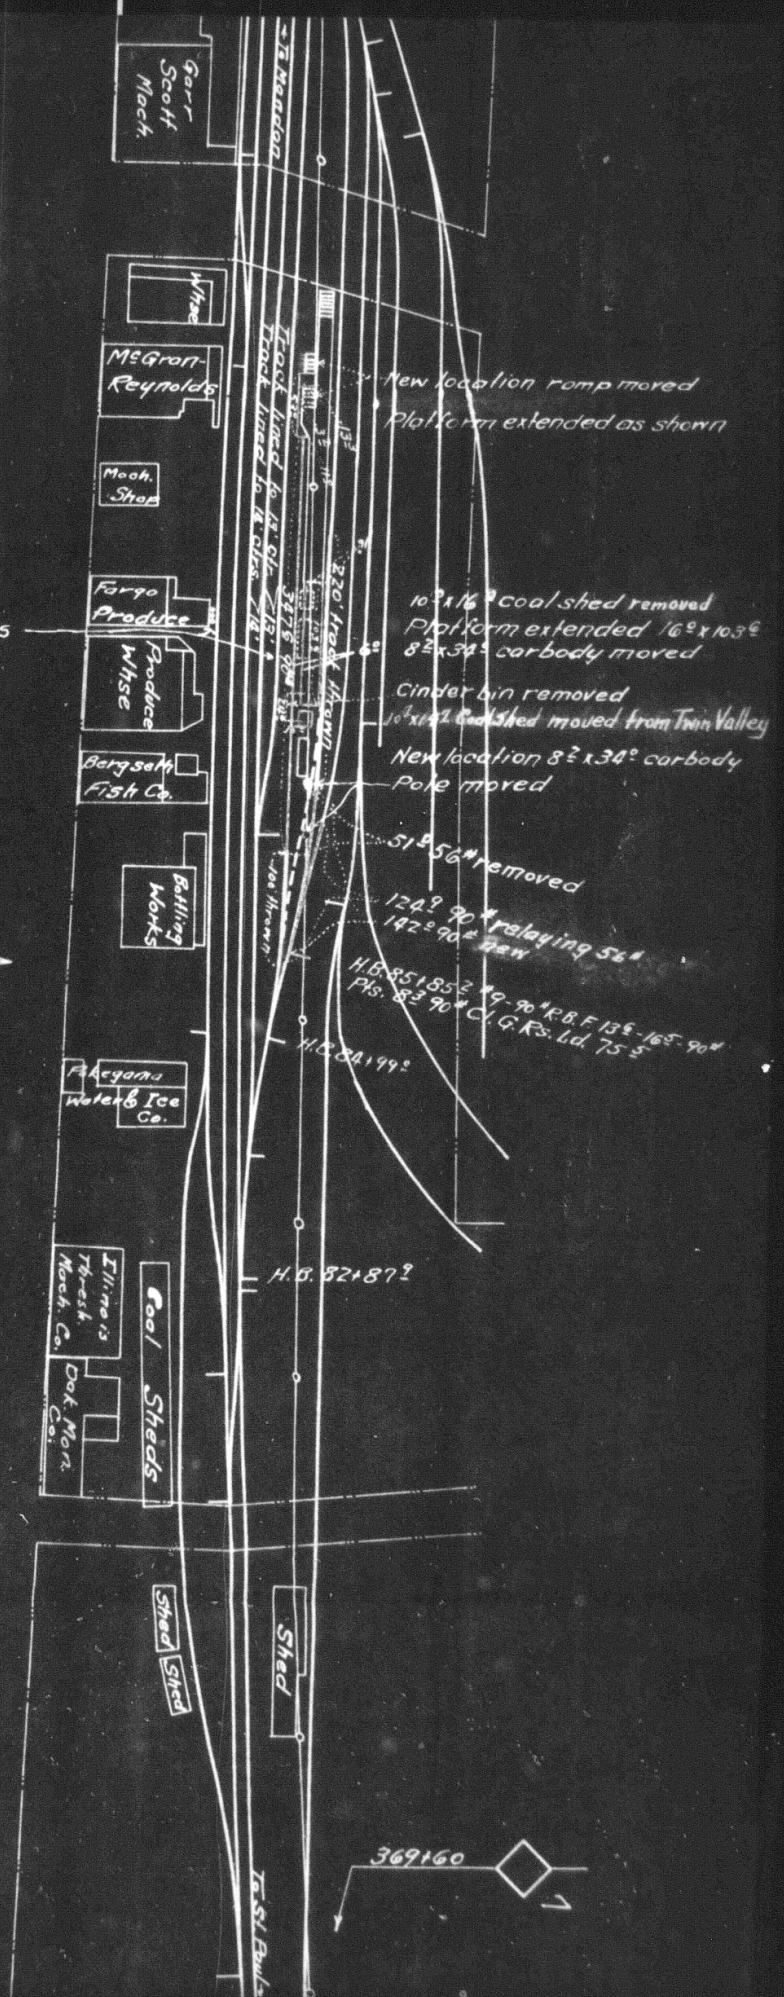 Garr
Scott
Mach.
To Mandan
Whse
McGran-
Reynolds
Mach.
Shop
Fargo
Produce
Produce
Whse
Bergseth
Fish Co.
Bottling
Works
Pokegama
Water & Ice
Co.
Illinois
Thresh.
Mach. Co.
Dak. Mon.
Co.
Coal Sheds
Shed
Shed
Shed
Track lined to 13' ctr. 213'
Track lined to 14' ctrs. 714'
220' track thrown
100' thrown
New location ramp moved
Platform extended as shown
10⁰ x 16⁰ coal shed removed
Platform extended 16⁰ x 103⁶
8² x 34⁰ carbody moved
6⁰
Cinder bin removed
Coal shed moved from Twin Valley
New location 8² x 34⁰ carbody
Pole moved
56# removed
124⁹ 90# relaying 56#
142⁰ 90# new
H.B. 85+85² #9-90# R.B.F. 13⁶-16⁵-90#
Pts. 8³ 90# C.I. G.Rs. Ld. 75⁵
H.B. 84+99⁰
H.B. 82+87⁹
369+60
7
To St. Paul